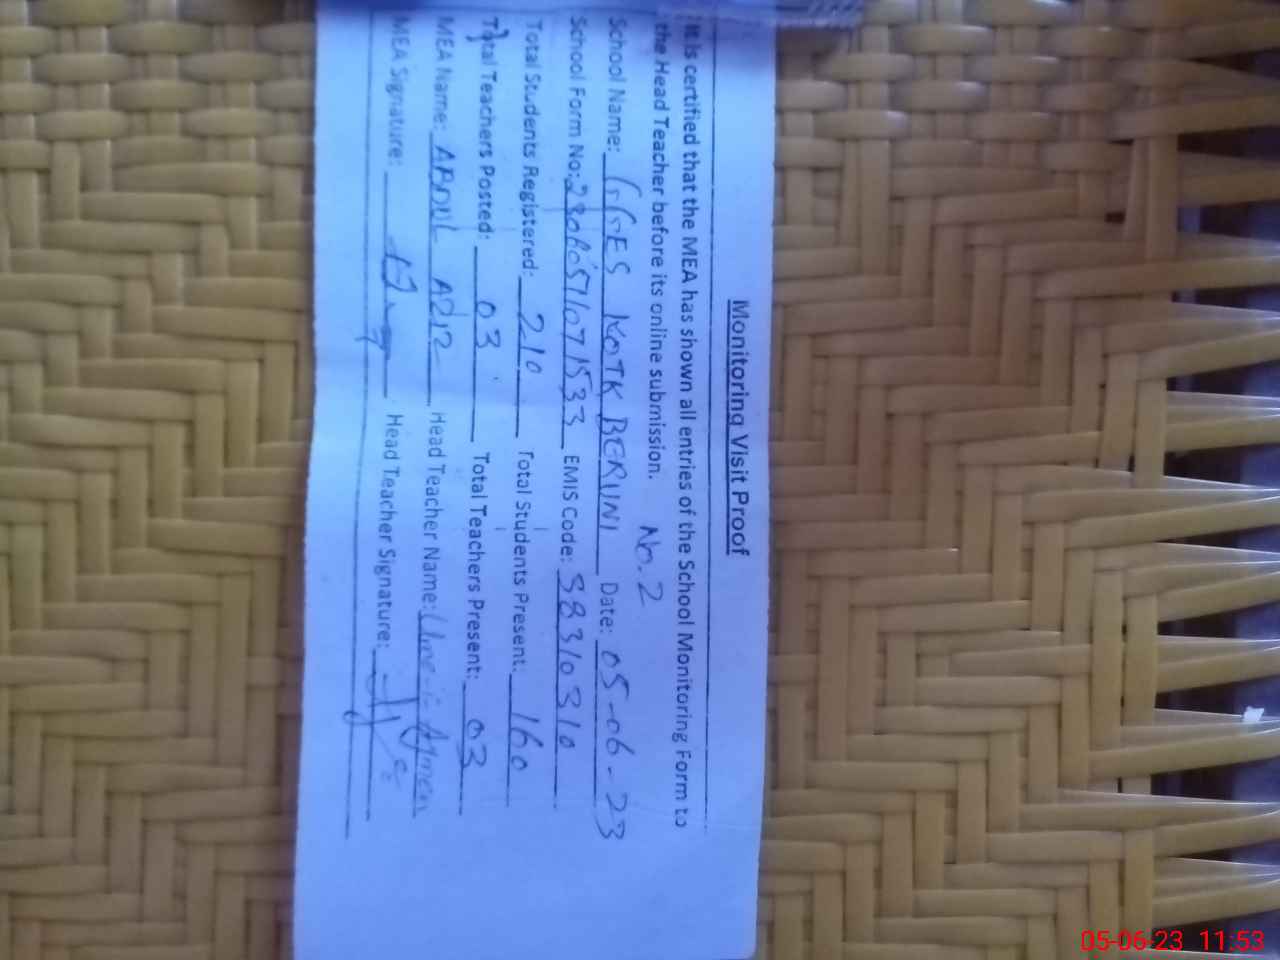 Monitoring Visit Proof
It is certified that the MEA has shown all entries of the School Monitoring Form to
the Head Teacher before its online submission. No. 2
School Name: GGES KOTK BERUNI Date: 05-06-23
School Form No: EMIS Code: 38310310
Total Students Registered: 210 Total Students Present: 160
Total Teachers Posted: 03 Total Teachers Present: 03
MEA Name: ABDUL AZIZ Head Teacher Name:
MEA Signature: Head Teacher Signature:
05-06-23 11:53